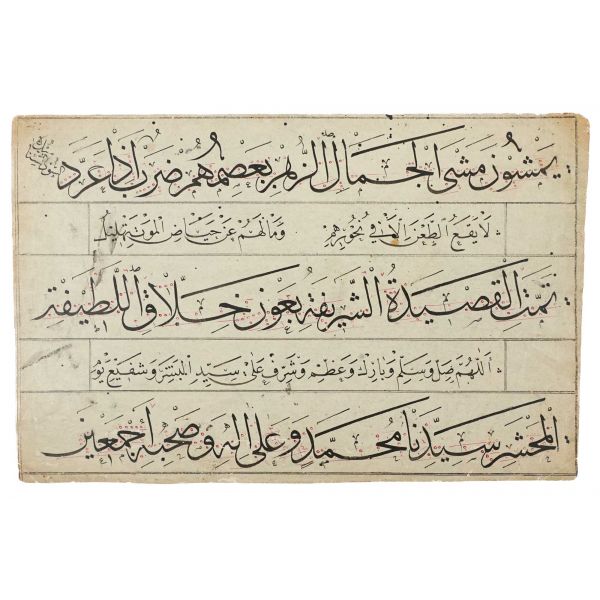 يمشون مشي الجمال الزهر يعصمهم ضرب اذا عرد
لا يقع الطعن الا في نحورهم وما لهم عن حياض الموت تهليل
تمت القصيدة الشريفة بعون خلاق اللطيفة
اللهم صل وسلم وبارك وعظم وشرف على سيد البشر وشفيع يوم
المحشر سيدنا محمد وعلى اله وصحبه اجمعين